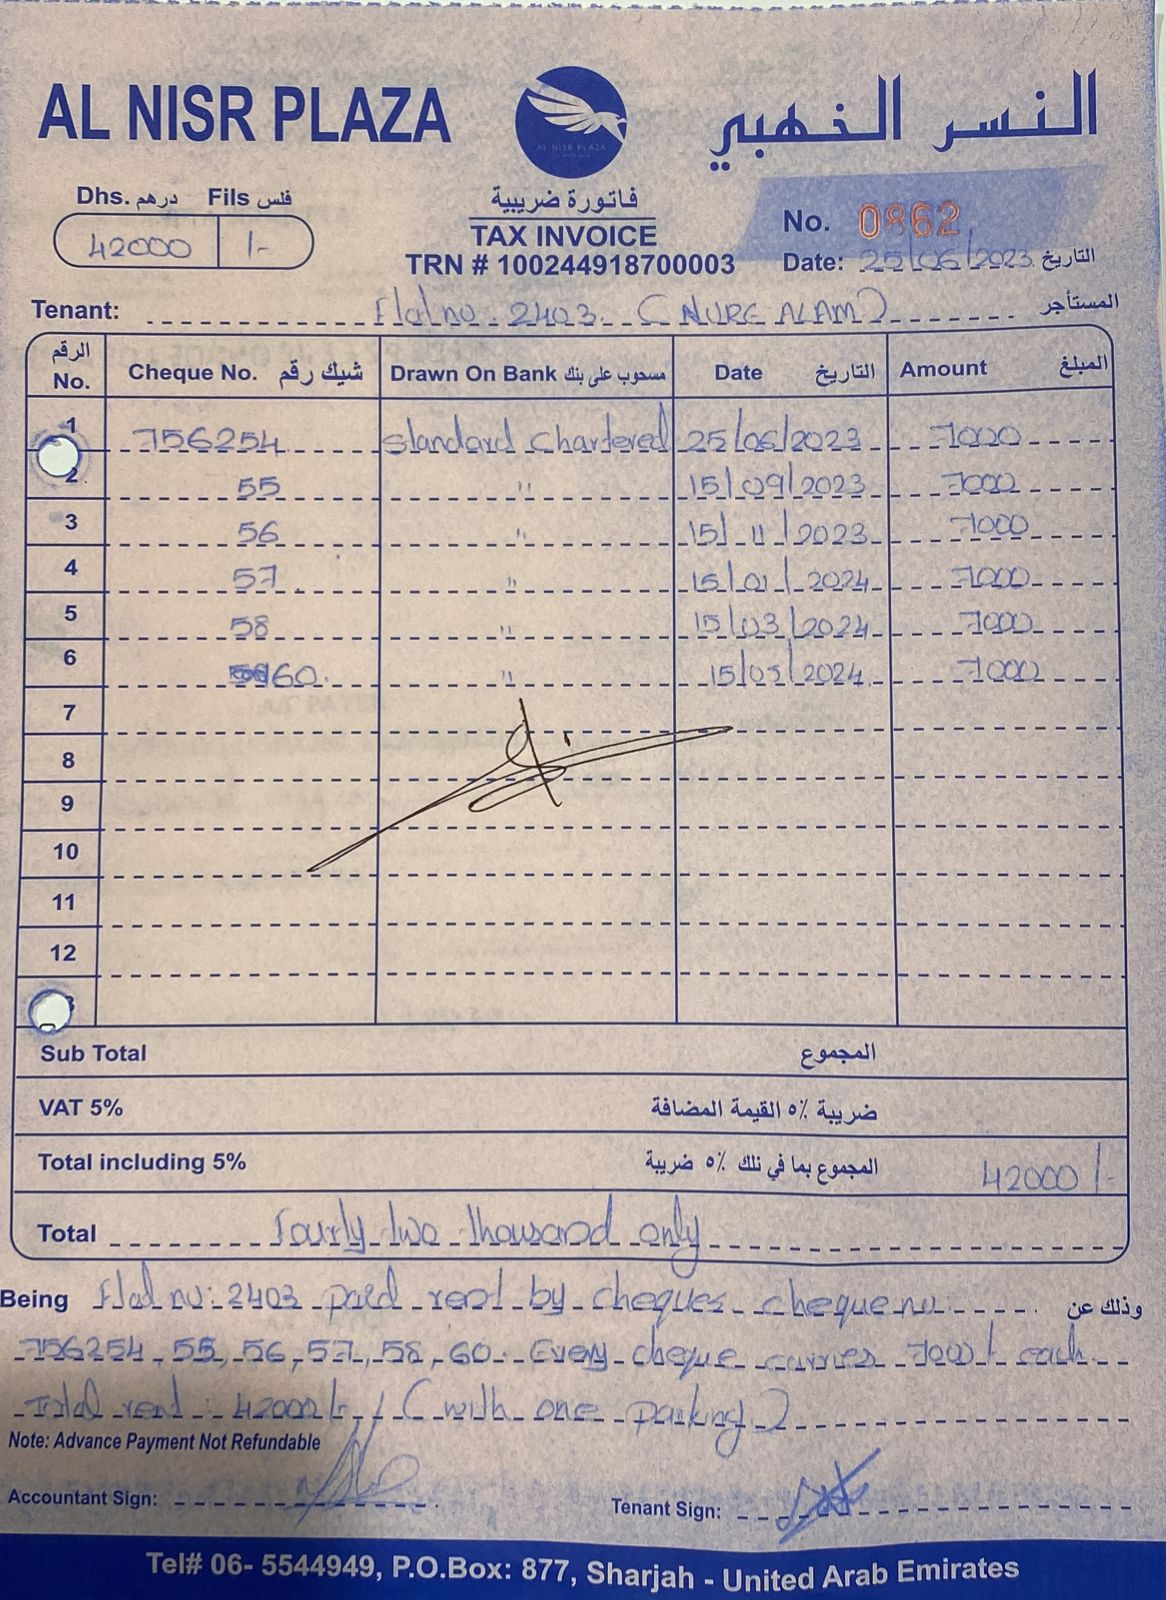 AL NISR PLAZA
AL NISR PLAZA
النسر الذهبي
Dhs. درهم Fils فلس
42000 /-
فاتورة ضريبية
TAX INVOICE
TRN # 100244918700003
No. 0862
Date: 25/06/2023 التاريخ
Tenant: Flat no: 2403. (NURE ALAM) المستأجر
الرقم No. Cheque No. شيك رقم Drawn On Bank مسحوب على بنك Date التاريخ Amount المبلغ
1 756254 Standard Chartered 25/06/2023 7000
2 55 " 15/09/2023 7000
3 56 " 15/11/2023 7000
4 57 " 15/01/2024 7000
5 58 " 15/03/2024 7000
6 60. " 15/05/2024 7000
7
8
9
10
11
12
Sub Total المجموع
VAT 5% ضريبة ٥٪ القيمة المضافة
Total including 5% المجموع بما في تلك ٥٪ ضريبة 42000/-
Total Fourty two thousand only
Being Flat no: 2403 paid rent by cheques cheque no: وذلك عن
756254, 55, 56, 57, 58, 60. Every cheque carries 7000/- each.
Total rent : 42000/-/ (with one parking)
Note: Advance Payment Not Refundable
Accountant Sign:
Tenant Sign:
Tel# 06- 5544949, P.O.Box: 877, Sharjah - United Arab Emirates